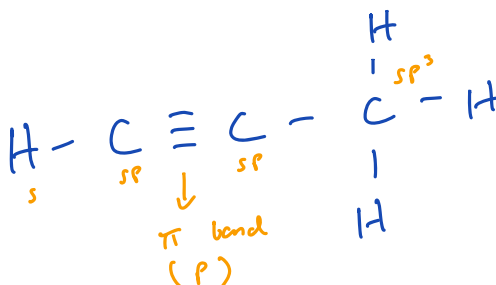 H
sp³
H - C ≡ C - C - H
s sp sp
H
π band
(p)